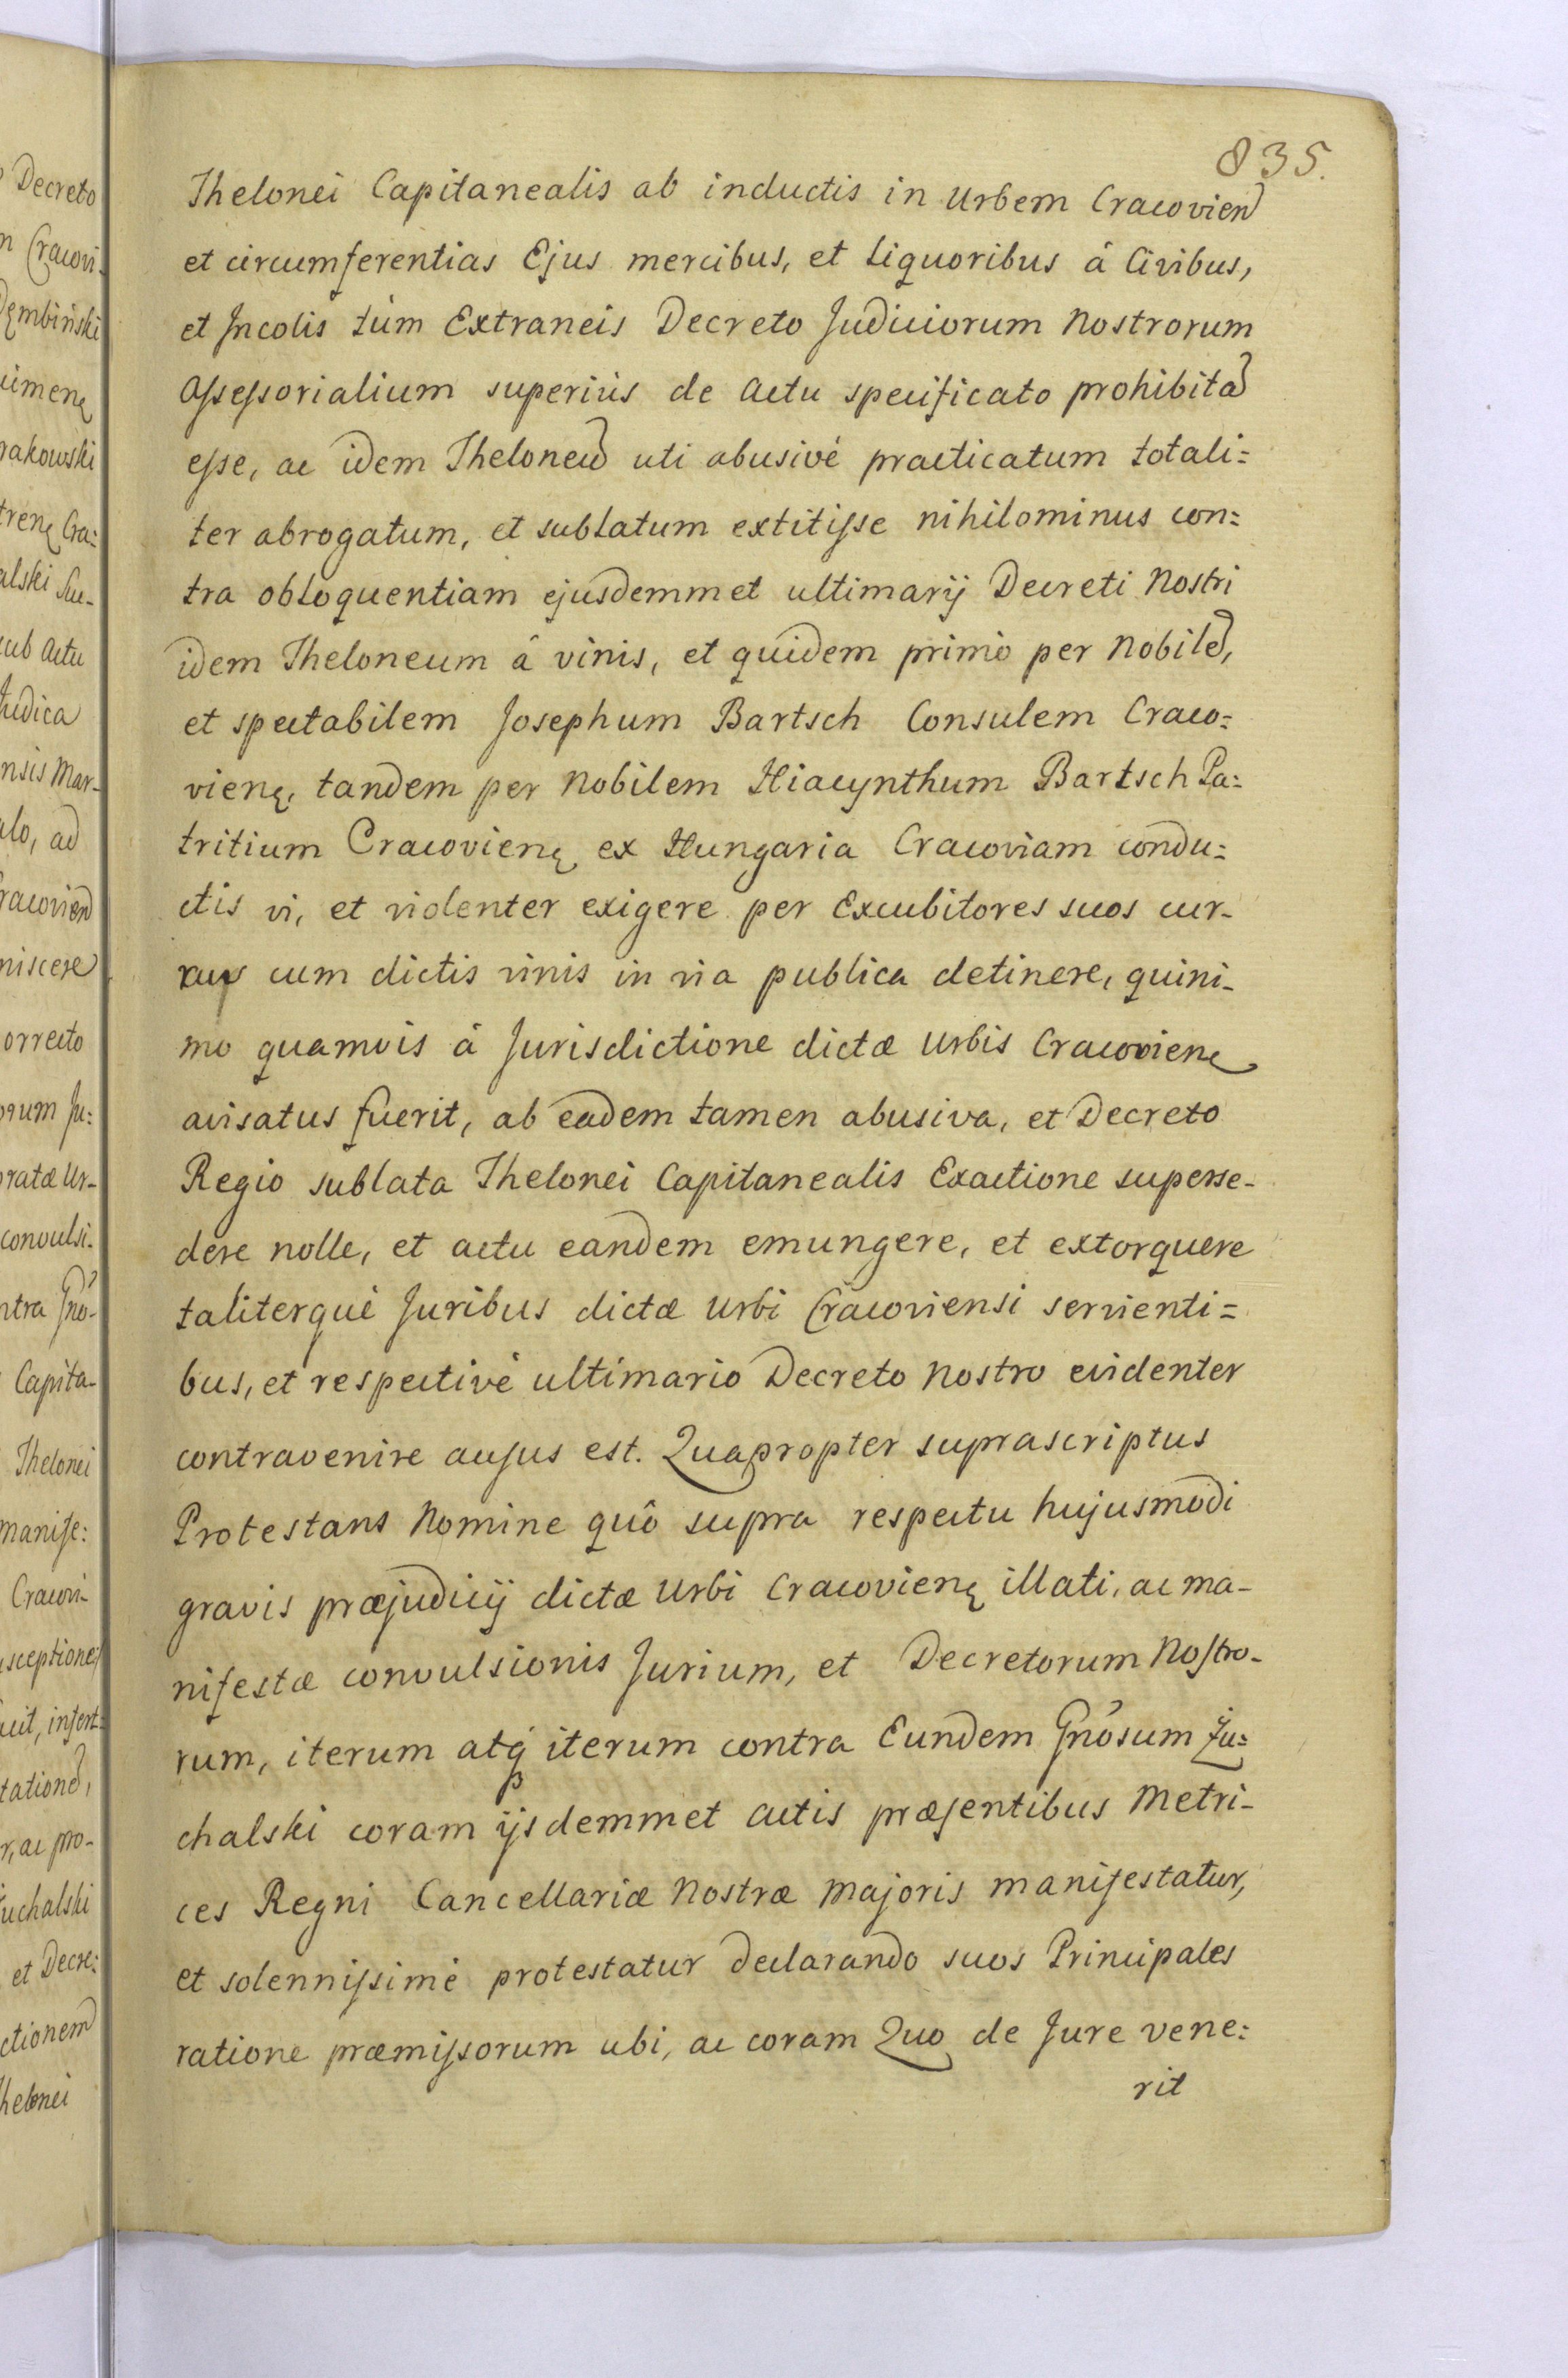 835.
Thelonei Capitanealis ab inductis in Urbem Cracovien
et circumferentias Ejus mercibus, et Liquoribus â Civibus,
et Incolis túm Extraneis Decreto Judiciorum Nostrorum
Assessorialium superiùs de actu specificato prohibita
esse, ac idem Theloneu uti abusivé practicatum totali=
ter abrogatum, et sublatum extitisse nihilominus con=
tra obloquentiam ejusdemmet ultimarij Decreti Nostri
idem Theloneum â vinis, et quidem primò per Nobile,
et spectabilem Josephum Bartsch Consulem Craco=
vienę, tandem per Nobilem Hiacynthum Bartsch Pa=
tritium Cracovienę ex Hungaria Cracoviam condu=
ctis vi, et violenter exigere per Excubitores suos cur-
rus cum dictis vinis in via publica detinere, quini-
mo quamvis â Jurisdictione dictæ Urbis Cracovienę
avisatus fuerit, ab eadem tamen abusiva, et Decreto
Regio sublata Thelonei Capitanealis Exactione superse-
dere nolle, et actu eandem emungere, et extorquere
taliterquè Juribus dictæ Urbi Cracoviensi servienti=
bus, et respectivè ultimario Decreto Nostro evidenter
contravenire ausus est. Quapropter suprascriptus
Protestans Nomine quô supra respectu hujusmodi
gravis præjudicij dictæ Urbi Cracovienę illati, ac ma-
nifestæ convulsionis Jurium, et Decretorum Nostro-
rum, iterum atq́ iterum contra Eundem Gnôsum Żu=
chalski coram ijsdemmet actis præsentibus Metri-
ces Regni Cancellariæ Nostræ Majoris manifestatur,
et solennissimè protestatur declarando suos Principales
ratione præmissorum ubi, ac coram Quo de Jure vene:
rit
Decreto
n Cracovi-
Dębiński
imenę
rakowski
trenę Cra:
alski Su-
sub Actu
Judica
nsis Mar-
alo, ad
racovien
niscere
orrecto
orum Ju:
ratæ Ur-
convulsi-
ntra Gnô-
Capita-
Thelonei
manife:
Cracovi-
sceptione
cit, insert:
tatione,
r, ac pro-
Żuchalski
et Decre:
ctionem
helonei